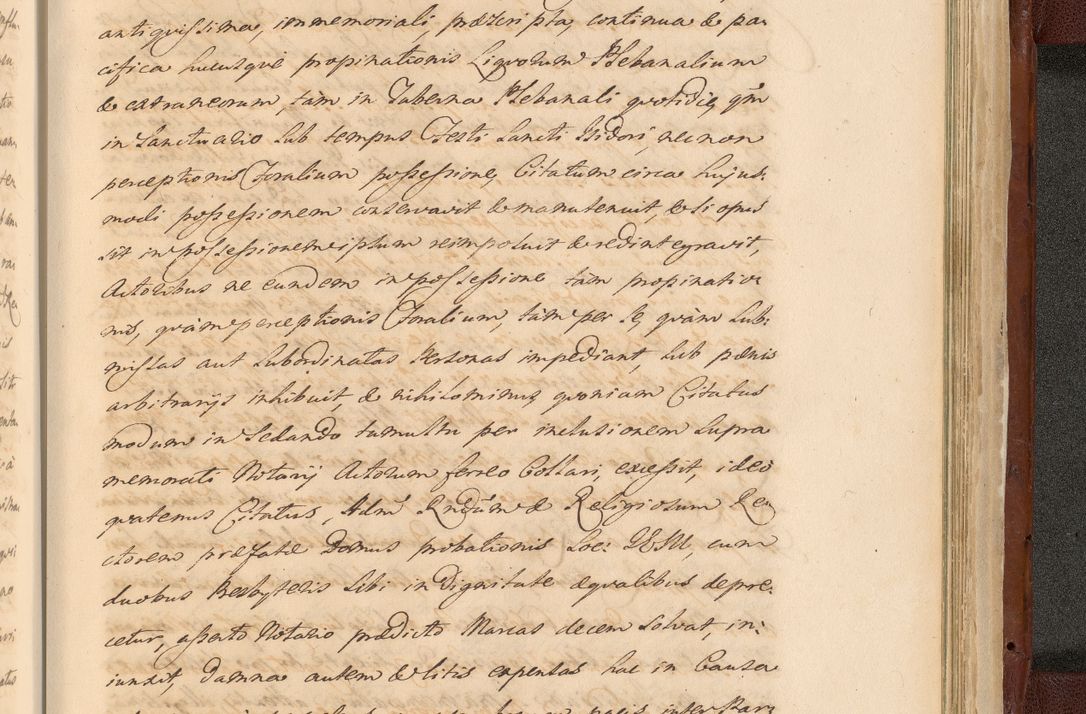 antiquissima, immemoriali, præscripta, continua & pa-
cifica hucusque propinationis Liquorum Plebanalium
& extraneorum tàm in Taberna Plebanali quotidie, qm
in Sanctuario sub tempus Festi Sancti Isidori, nec non
perceptionis Foralium possessione, Citatum circa hujus-
modi possessionem conservavit & manutenuit, & si opus
sit in possessionem ipsum reimposuit & redintegravit,
Actoribus ne eundem in possessione tàm propinatio-
nis, quàm perceptionis Foralium, tàm per se, quàm sub-
missas aut subordinatas Personas impediant, sub pænis
arbitrarijs inhibuit, & nihilominus, quoniam Citatus
modum in sedando tumultu per inclusionem supra
memorati Notarij Actorum ferreo Collari, excessit, ideo
quatenus Citatus, Adm Rndum & Religiosum Re-
ctorem præfatæ Domus probationis Soc: JESU, cum
duobus Presbyteris sibi in Dignitate æqualibus depre-
cetur, asserto Notario prædicto Marcas decem solvat, in-
iunxit, Damna autem & litis expensas hac in Causa